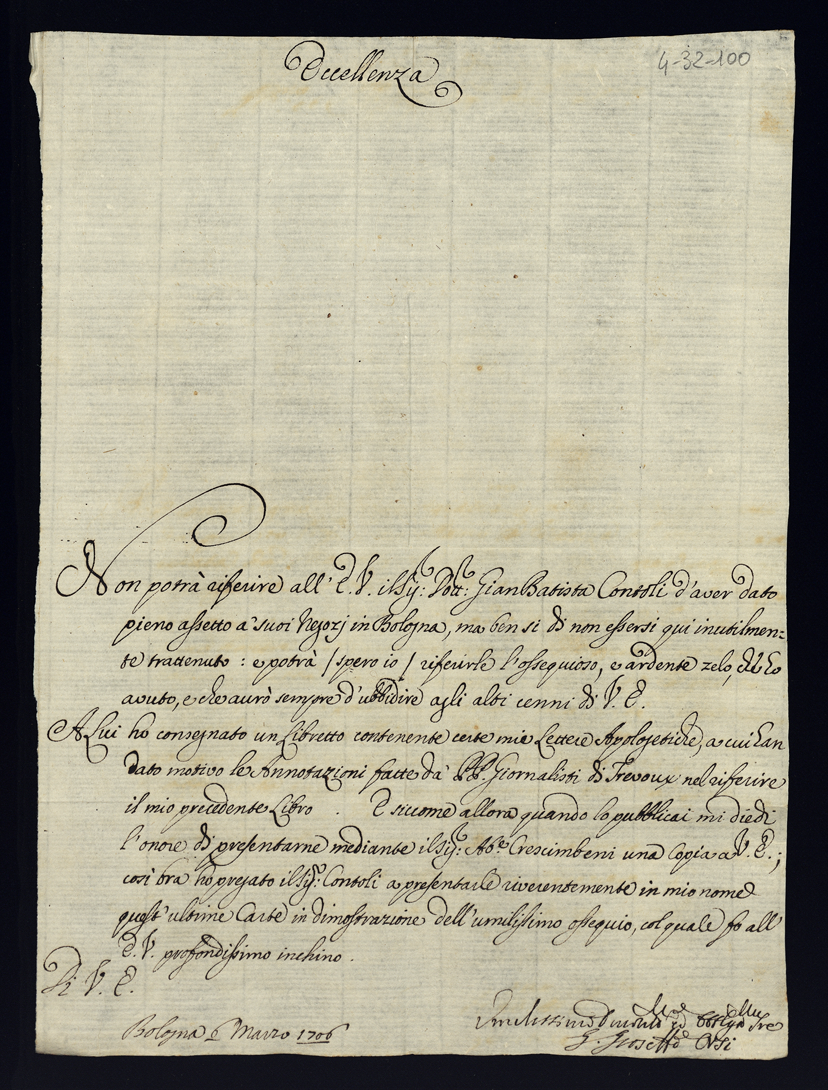 Eccellenza
4-32-100
Non potrà riferire all' E. V. il Sig.r Dott.r Gian Batista Contoli d'aver dato
pieno assetto a' suoi Negozj in Bologna, ma ben sì di non essersi quì inutilmen=
te trattenuto : e potrà / spero io / riferirle l'ossequioso, e ardente zelo, che ho
avuto, e che aurò sempre d'ubbidire agli alti cenni di V. E.
A Lui ho consegnato un Libretto contenente certe mie Lettere Apologetiche, a cui han
dato motivo le Annotazioni fatte da' PP. Giornalisti di Trevoux nel riferire
il mio precedente Libro . E siccome allora quando lo pubblicai mi diedi
l'onore di presentarne mediante il Sig.r Ab.e Crescimbeni una Copia a V. E.;
così ora hò pregato il Sig.r Contoli a presentarle riverentemente in mio nome
quest' ultime Carte in dimostrazione dell'umilissimo ossequio, col quale fo all'
E. V. profondissimo inchino .
Di V. E.
Bologna 6 Marzo 1706
Umilissimo Divotis.mo ed
G. Gioseffo Orsi